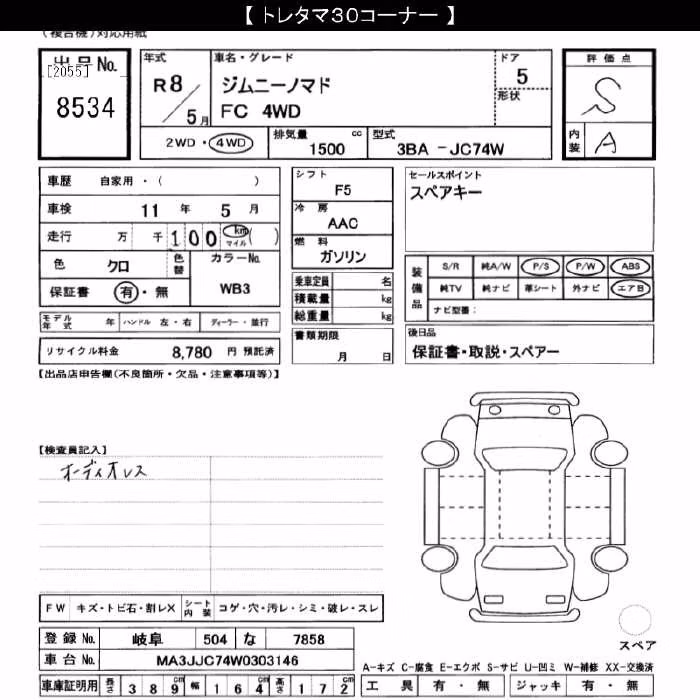 【 トレタマ30コーナー 】
(複合機)対応用紙
出品No.
[2055]
8534
年式
R 8 / 5月
車名・グレード
ジムニーノマド
FC 4WD
ドア
5
形状
評価点
S
内装
A
2WD・4WD
排気量
1500 cc
型式
3BA -JC74W
車歴 自家用・( )
車検 11 年 5 月
走行 万 千 1 0 0 km マイル ( )
色 クロ 色替 カラーNo.
保証書 有・無 WB3
モデル年式 年 ハンドル 左・右 ディーラー・並行
リサイクル料金 8,780 円 預託済
シフト
F5
冷房
AAC
燃料
ガソリン
乗車定員 名
積載量 kg
総重量 kg
書類期限
月 日
セールスポイント
スペアキー
装備品
S/R 純A/W P/S P/W ABS
純TV 純ナビ 革シート 外ナビ エアB
ナビ型番:
後日品
保証書・取説・スペアー
【出品店申告欄(不良箇所・欠品・注意事項等)】
【検査員記入】
オーディオレス
FW キズ・トビ石・割レX シート内装 コゲ・穴・汚レ・シミ・破レ・スレ
登録No. 岐阜 504 な 7858
車台No. MA3JJC74W0303146
車庫証明用 長さ 3 8 9 cm 幅 1 6 4 cm 高さ 1 7 2 cm
スペア
A-キズ C-腐食 E-エクボ S-サビ U-凹ミ W-補修 XX-交換済
工具 有・無 ジャッキ 有・無